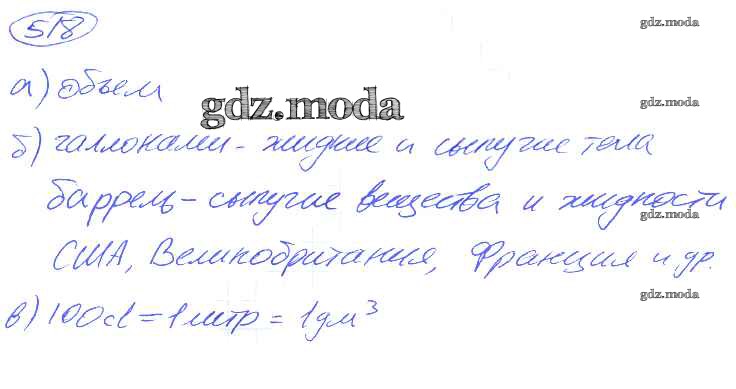 518
gdz.moda
а) объем
gdz.moda
gdz.moda
б) галлонами - жидкие и сыпучие тела
gdz.moda
баррель - сыпучие вещества и жидкости
gdz.moda
США, Великобритания, Франция и др.
gdz.moda
в) 100cl = 1 литр = 1 дм³